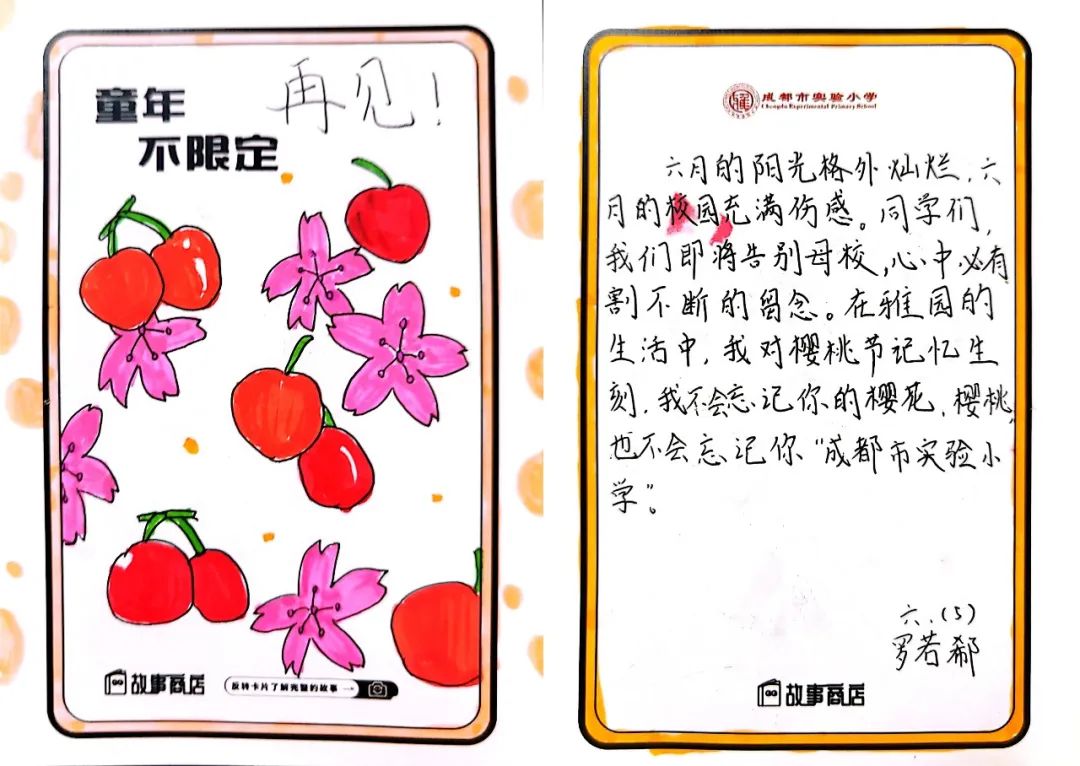 童年
不限定
再见！
故事商店
反转卡片了解完整的故事
成都市实验小学
Chengdu Experimental Primary School
六月的阳光格外灿烂，六
月的校园充满伤感。同学们，
我们即将告别母校，心中必有
割不断的留念。在雅园的
生活中，我对樱桃节记忆生
刻，我不会忘记你的樱花，樱桃，
也不会忘记你“成都市实验小
学”。
六.（5）
罗若郗
故事商店